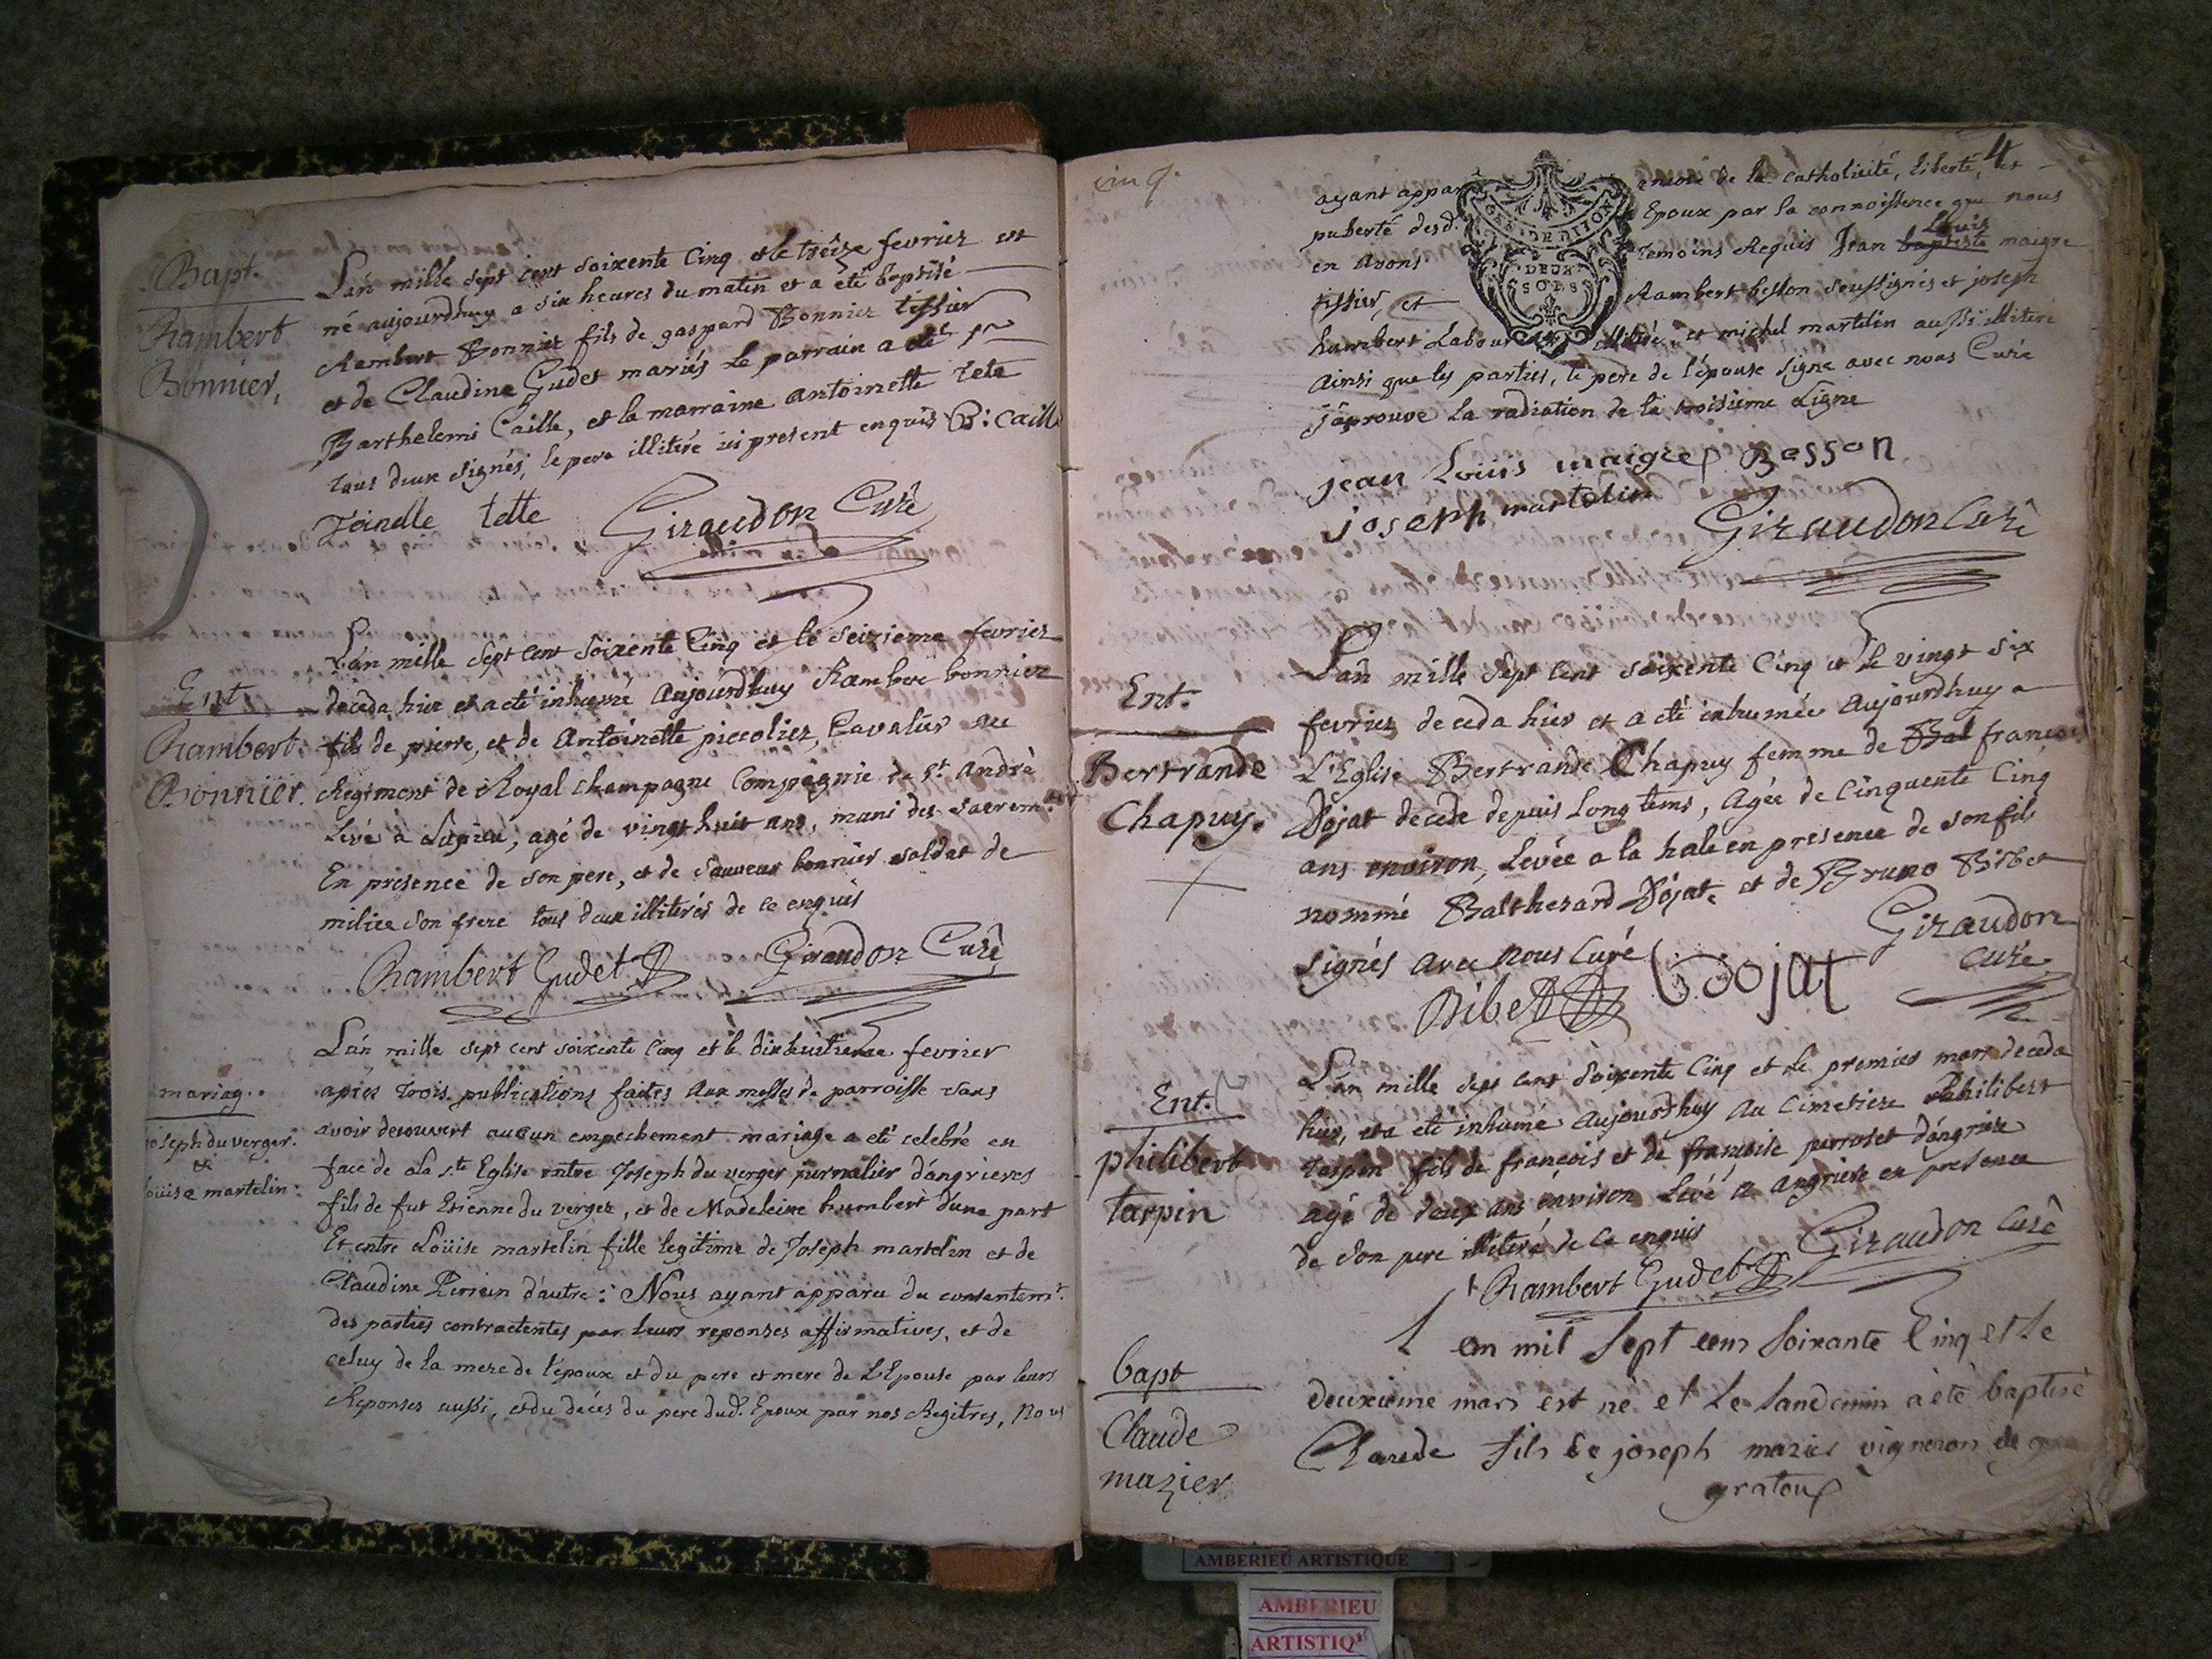 Bapt.
Rambert
Bonnier,
L'an mille sept cent soixente Cinq et le treize fevrier est
né aujourdhuy a six heures du matin et a eté baptisé
Rambert Bonnier fils de gaspard Bonnier tissier
et de Claudine Gudet mariés le parrain a eté sr
Barthelemi Caille, et la marraine antoinette tete
tous deux signés, le pere illiteré ici present enquis B: Caille
Toinette tette Giraudon Curé
Ent
Rambert
Bonnier.
L'an mille sept cent soixente Cinq et le seizieme fevrier
deceda hier et a eté inhumé aujourdhuy Rambert bonnier
fils de pierre, et de Antoinette piccolier, Cavalier au
Regiment de Royal champagne Compagnie de st. André
Levé a Lupieu, agé de vingt huit ans, muni des sacremts
En presence de son pere, et de sauveur bonnier soldat de
milice son frere tous deux illiterés de ce enquis
Rambert Gudet Giraudon Curé
mariag.
joseph du verger
et
Louise martelin:
L'an mille sept cent soixente Cinq et le dixhuitieme fevrier
après trois publications faites aux messes de parroisse sans
avoir decouvert aucun empechement mariage a eté celebré en
face de La ste Eglise entre Joseph du verger jurnalier d'angrieres
fils de fut Etienne du verger, et de Madeleine humbert d'une part
Et entre Loüise martelin fille legitime de Joseph martelin et de
Claudine Perrin d'autre: Nous ayant apparu du consentemt.
des parties contractentes par leurs reponses affirmatives, et de
celuy de la mere de l'époux et du pere et mere de L'Epouse par leurs
Reponses aussi, et du décés du pere dud. Epoux par nos Regitres, Nous
cinq.
4
ayant appar encore de la catholicité, liberté, et
puberté desd. Epoux par la connoissence que nous
Louis
en avons temoins Requis Jean baptiste maigre
tissier, et Rambert besson soussignés et joseph
humbert Labour illiteré, et michel martelin aussi illitere
ainsi que les parties, le pere de l'épouse signe avec nous Curé
j'aprouve la radiation de la troisieme Ligne
jean Louis maigre Besson
joseph martelin Giraudon Curé
Ent.
Bertrande
Chapuy.
L'an mille sept cent soixente Cinq et le vingt six
fevrier deceda hier et a eté inhumée aujourdhuy a
L'Eglise Bertrande Chapuy femme de Bal françois
Dojat decede depuis Long tems, agée de Cinquente Cinq
ans environ, Levée a la hale en presence de son fils
nommé Balthesard Dojat, et de Bruno Bibet
signés avec nous curé Giraudon
Bibet Dojat Curé
Ent.
philibert
tarpin
L'an mille sept cent soixente Cinq et le premier mars deceda
hier, et a eté inhumé aujourdhuy au Cimetiere philibert
tarpin fils de françois et de françoise perroset d'angriere
agé de deux ans environ Levé a angriere en presence
de son pere illiteré de ce enquis Giraudon curé
Rambert Gudet
bapt
Claude
mazier
L an mil sept cens soixante Cinq et le
deuxieme mars est né et le landemin a été baptisé
Claude fils de joseph mazier vigneron de
gratoux
GEN. DE DIJON
DEUX
SOLS
AMBERIEU ARTISTIQUE
AMBERIEU
ARTISTIQ